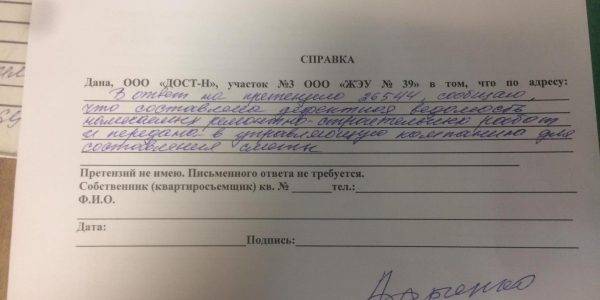 СПРАВКА
Дана, ООО «ДОСТ-Н», участок №3 ООО «ЖЭУ № 39» в том, что по адресу:
В ответ на претензию 26544, сообщаю,
что составлена дефектная ведомость
ремонтно-строительных работ
и передана в управляющую компанию для
составления сметы
Претензий не имею. Письменного ответа не требуется.
Собственник (квартиросъемщик) кв. № ________тел.:________
Ф.И.О.
Дата:
________Подпись:________